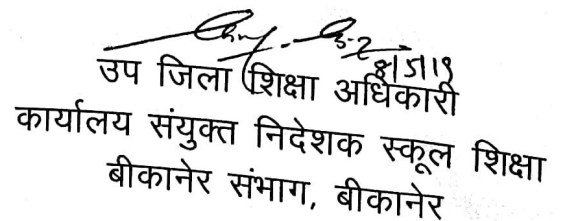 8/5/19
उप जिला शिक्षा अधिकारी
कार्यालय संयुक्त निदेशक स्कूल शिक्षा
बीकानेर संभाग, बीकानेर